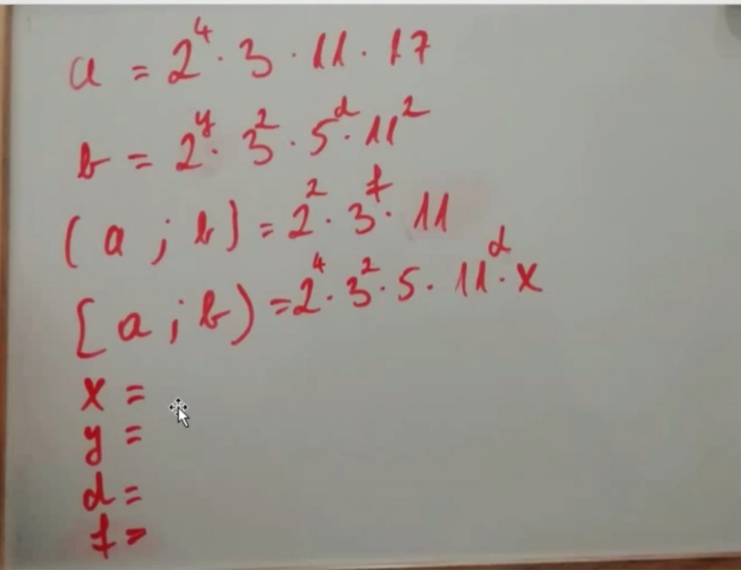 a = 2⁴ · 3 · 11 · 17
b = 2ʸ · 3² · 5ᵈ · 11²
(a ; b) = 2² · 3ᶠ · 11
[a ; b) = 2⁴ · 3² · 5 · 11ᵈ · x
x =
y =
d =
f =